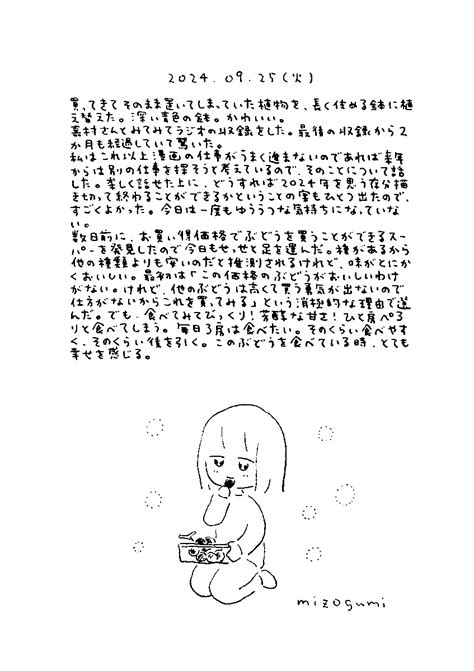 2024.09.25(火)
買ってきてそのまま置いてしまっていた植物を、長く住める鉢に植
え替えた。深い青色の鉢。かわいい。
嘉村さんとみてみてラジオの収録をした。最後の収録から2
か月も経過していて驚いた。
私はこれ以上漫画の仕事がうまく進まないのであれば来年
からは別の仕事を探そうと考えているので、そのことについて話
した。楽しく話せた上に、どうすれば2024年を思う存分描
き切って終わることができるかということの案もひとつ出たので、
すごくよかった。今日は一度もゆううつな気持ちになっていな
い。
数日前に、お買い得価格でぶどうを買うことができるスー
パーを発見したので今日もせっせと足を運んだ。種があるから
他の種類よりも安いのだと推測されるけれど、味がとにか
くおいしい。最初は「この価格のぶどうがおいしいわけ
がない。けれど、他のぶどうは高くて買う勇気が出ないので
仕方がないからこれを買ってみる」という消極的な理由で選
んだ。でも、食べてみてびっくり!芳醇な甘さ!ひと房ペろ
りと食べてしまう。毎日3房は食べたい。そのくらい食べやす
く、そのくらい後を引く。このぶどうを食べている時、とても
幸せを感じる。
mizogumi